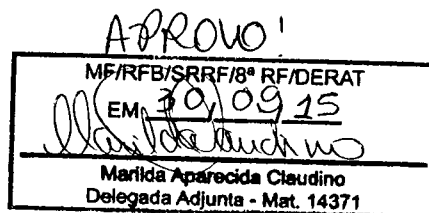 APROVO!
MF/RFB/SRRF/8ª RF/DERAT
EM 30, 09, 15
Marilda Claudino
Marilda Aparecida Claudino
Delegada Adjunta - Mat. 14371